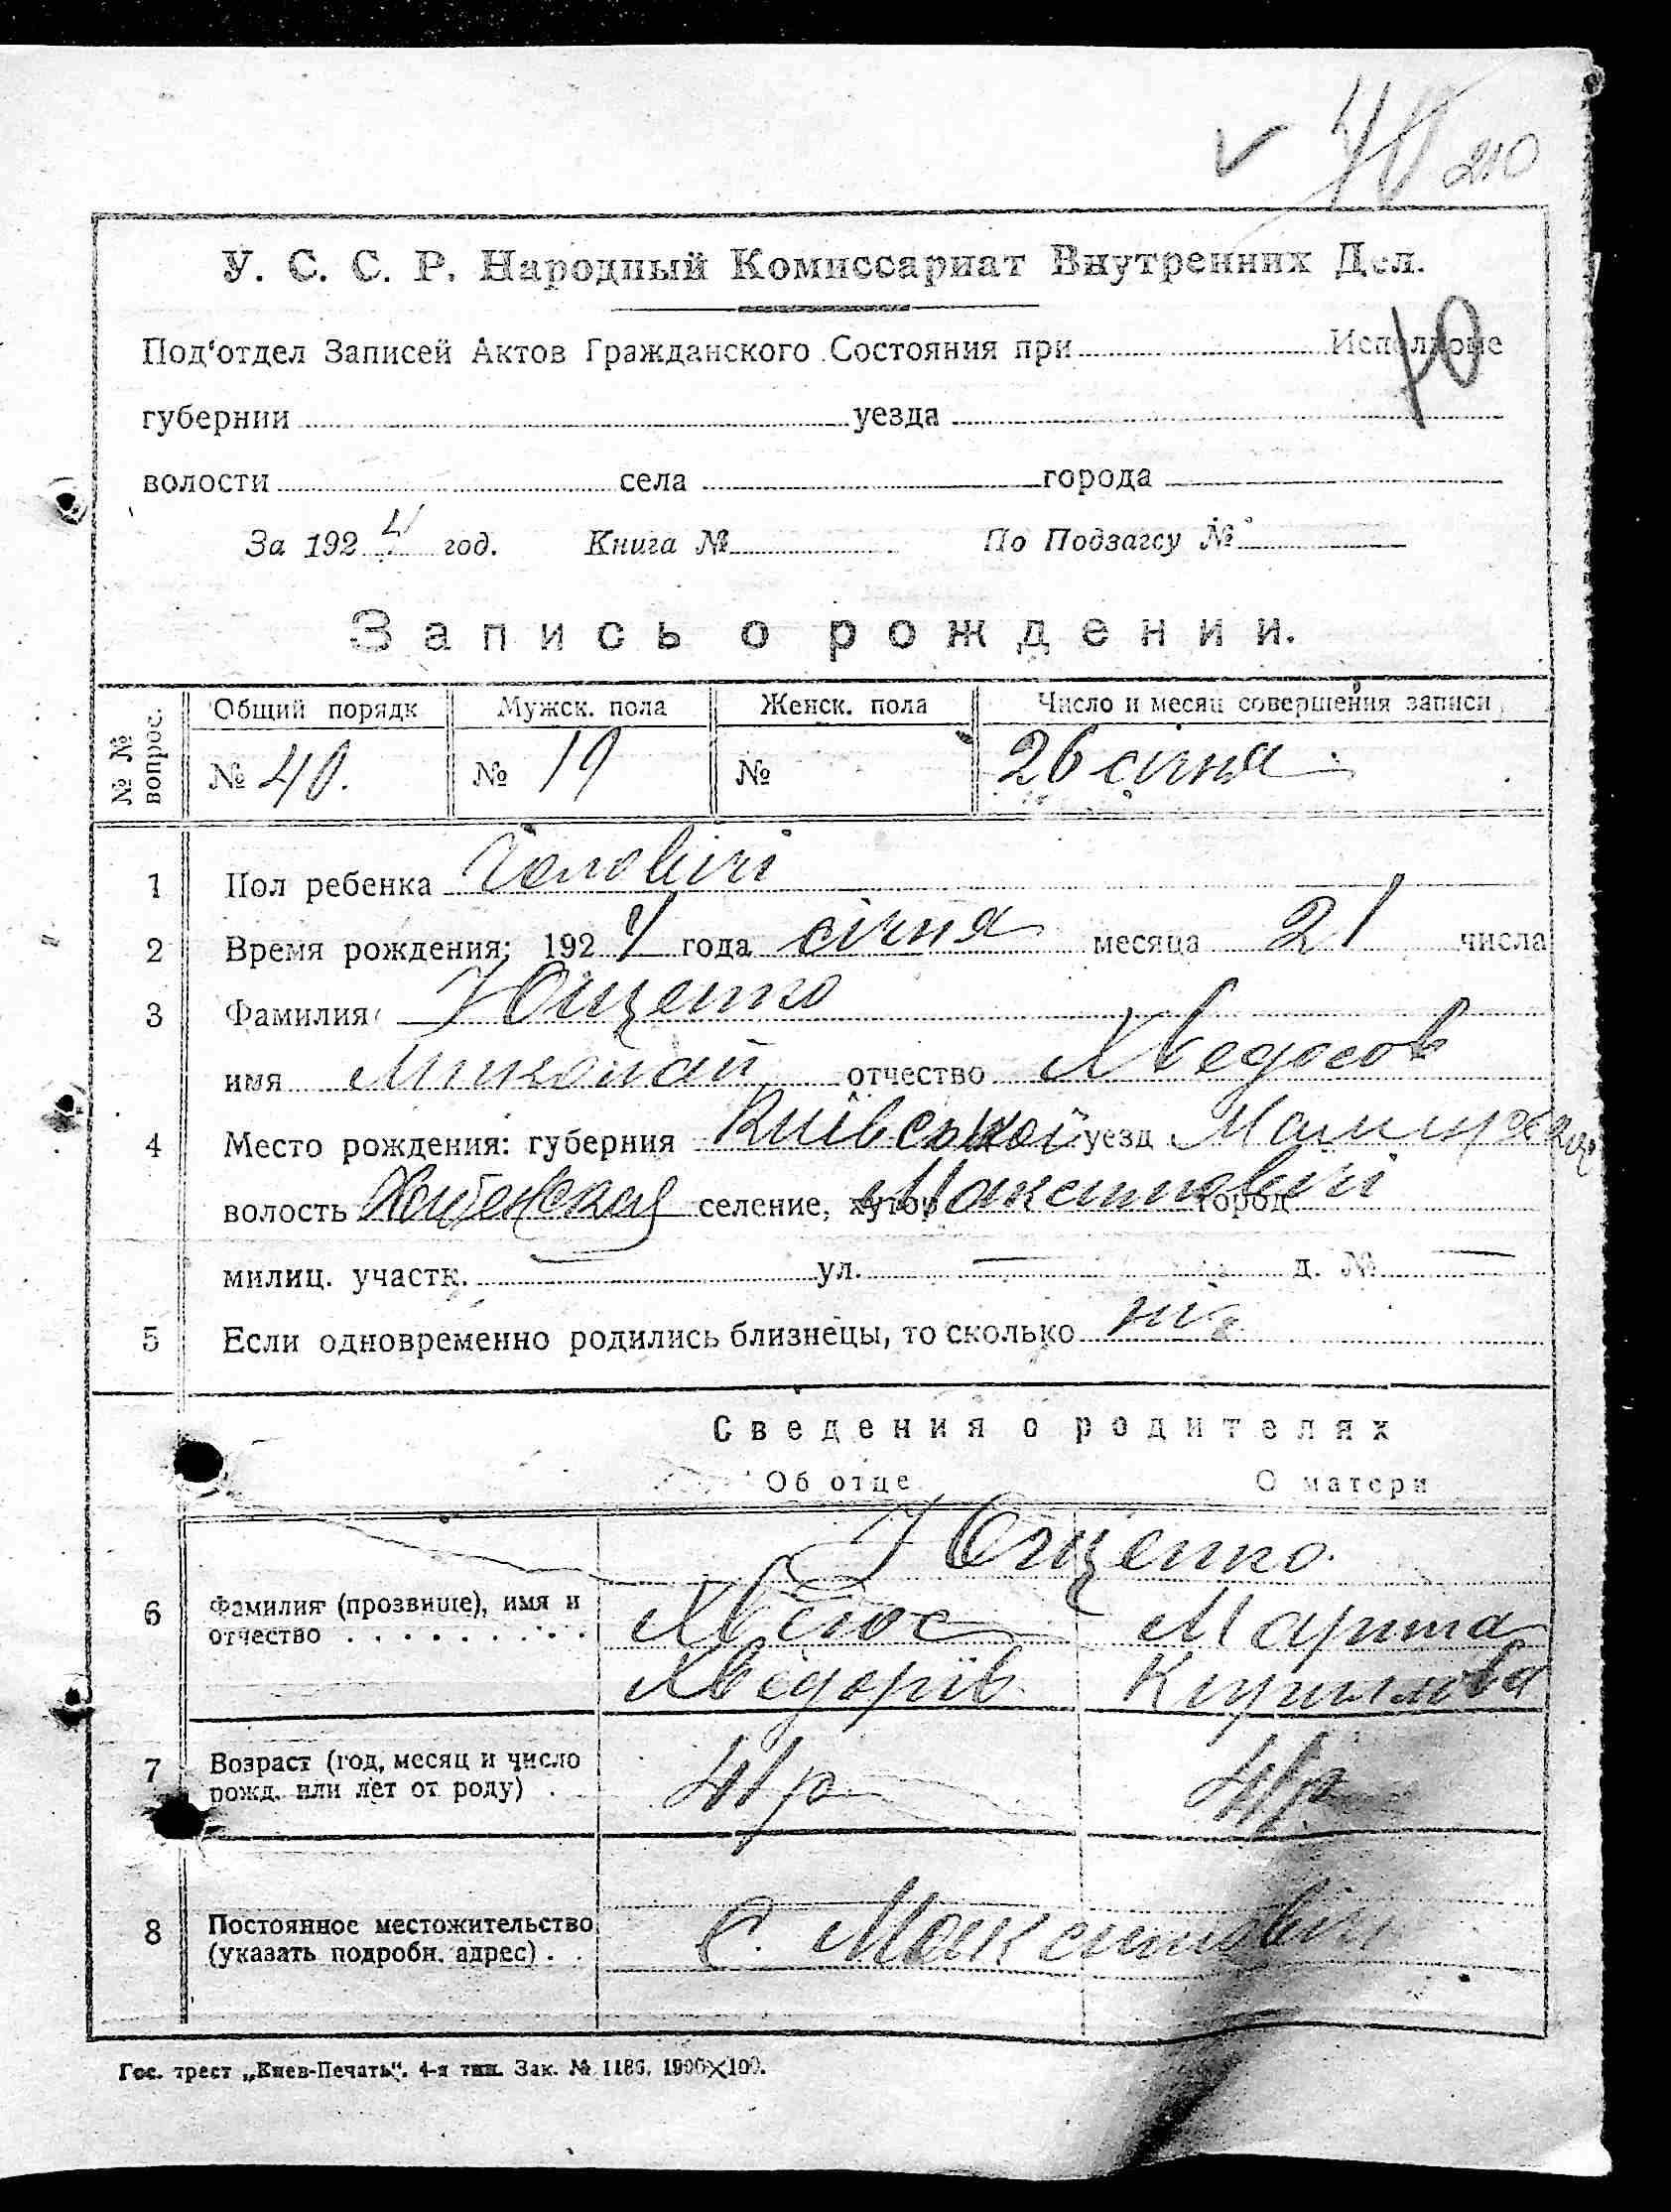 40 210
У. С. С. Р. Народный Комиссариат Внутренних Дел.
Под'отдел Записей Актов Гражданского Состояния при Исполкоме
10
губернии уезда
волости села города
За 1924 год. Книга № По Подзагсу №
Запись о рождении.
№ № вопрос. Общий порядк Мужск. пола Женск. пола Число и месяц совершения записи
№ 40. № 19 № 26 січня
1 Пол ребенка Чоловічі
2 Время рождения: 1924 года січня месяца 21 числа
3 Фамилия Ющенко
имя Миколай отчество Хведосов
4 Место рождения: губерния Київської уезд
волость селение, хутор Максимовічі город
милиц. участк. — ул. — д. № —
5 Если одновременно родились близнецы, то сколько ні
Сведения о родителях
Об отце О матери
Ющенко
6 Фамилия (прозвище), имя и Хведос Марина
отчество . . . . . . . . . Хведорів Кирилова
7 Возраст (год, месяц и число 41 р 41 р
рожд. или лет от роду) .
8 Постоянное местожительство С. Максимовічі
(указать подробн. адрес) . .
Гос. трест „Киев-Печать". 4-я тип. Зак. № 1186. 1900×100.